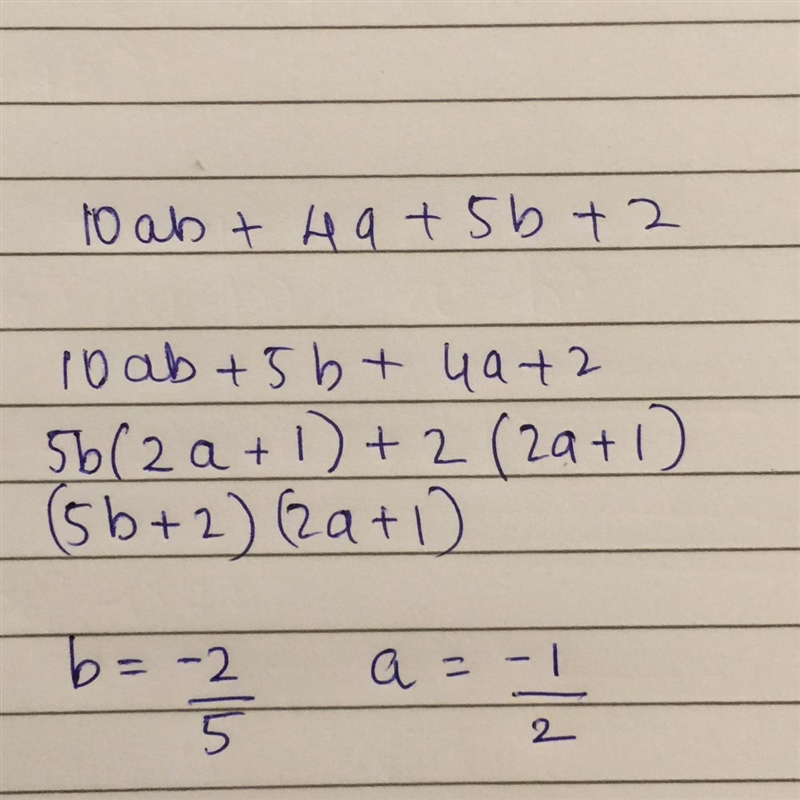 10ab + 4a + 5b + 2
10ab + 5b + 4a + 2
5b(2a + 1) + 2 (2a + 1)
(5b + 2) (2a + 1)
b = -2/5 a = -1/2